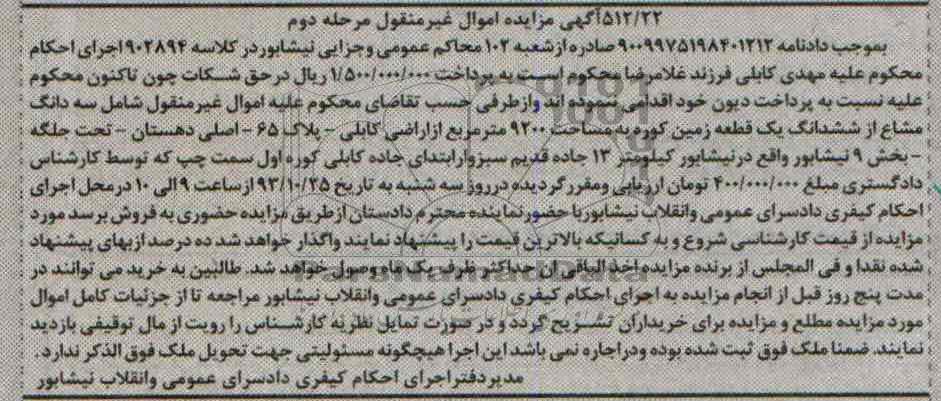 ۵۱۲/۲۲آگهی مزایده اموال غیرمنقول مرحله دوم
بموجب دادنامه ۹۰۰۹۹۷۵۱۹۸۴۰۱۲۱۲ صادره ازشعبه ۱۰۲ محاکم عمومی وجزایی نیشابوردر کلاسه ۹۰۲۸۹۴ اجرای احکام
محکوم علیه مهدی کابلی فرزند غلامرضا محکوم است به پرداخت ۱/۵۰۰/۰۰۰/۰۰۰ ریال درحق شکات چون تاکنون محکوم
علیه نسبت به پرداخت دیون خود اقدامی ننموده اند وازطرفی حسب تقاضای محکوم علیه اموال غیرمنقول شامل سه دانگ
مشاع از ششدانگ یک قطعه زمین کوره به مساحت ۹۲۰۰ مترمربع ازاراضی کابلی - پلاک ۶۵ - اصلی دهستان - تحت جلگه
- بخش ۹ نیشابور واقع درنیشابور کیلومتر ۱۳ جاده قدیم سبزوارابتدای جاده کابلی کوره اول سمت چپ که توسط کارشناس
دادگستری مبلغ ۴۰۰/۰۰۰/۰۰۰ تومان ارزیابی ومقررگردیده درروزسه شنبه به تاریخ ۹۳/۱۰/۲۵ ازساعت ۹ الی ۱۰ درمحل اجرای
احکام کیفری دادسرای عمومی وانقلاب نیشابوربا حضورنماینده محترم دادستان ازطریق مزایده حضوری به فروش برسد مورد
مزایده از قیمت کارشناسی شروع و به کسانیکه بالاترین قیمت را پیشنهاد نمایند واگذار خواهد شد ده درصد ازبهای پیشنهاد
شده نقدا و فی المجلس از برنده مزایده اخذ الباقی ان حداکثر ظرف یک ماه وصول خواهد شد. طالبین به خرید می توانند در
مدت پنج روز قبل از انجام مزایده به اجرای احکام کیفری دادسرای عمومی وانقلاب نیشابور مراجعه تا از جزئیات کامل اموال
مورد مزایده مطلع و مزایده برای خریداران تشریح گردد و در صورت تمایل نظریه کارشناس را رویت از مال توقیفی بازدید
نمایند. ضمنا ملک فوق ثبت شده بوده ودراجاره نمی باشد این اجرا هیچگونه مسئولیتی جهت تحویل ملک فوق الذکر ندارد.
مدیردفتراجرای احکام کیفری دادسرای عمومی وانقلاب نیشابور